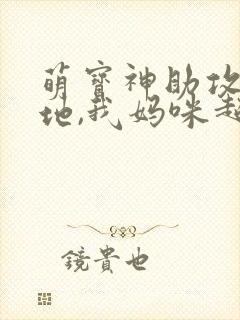 萌寶神助攻
地,我媽咪超
鏡貴也